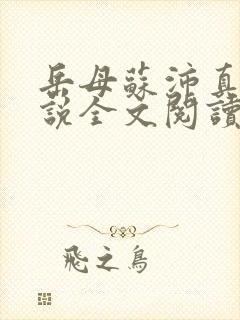 岳母蘇沛真
説全文閱讀
飛之鳥